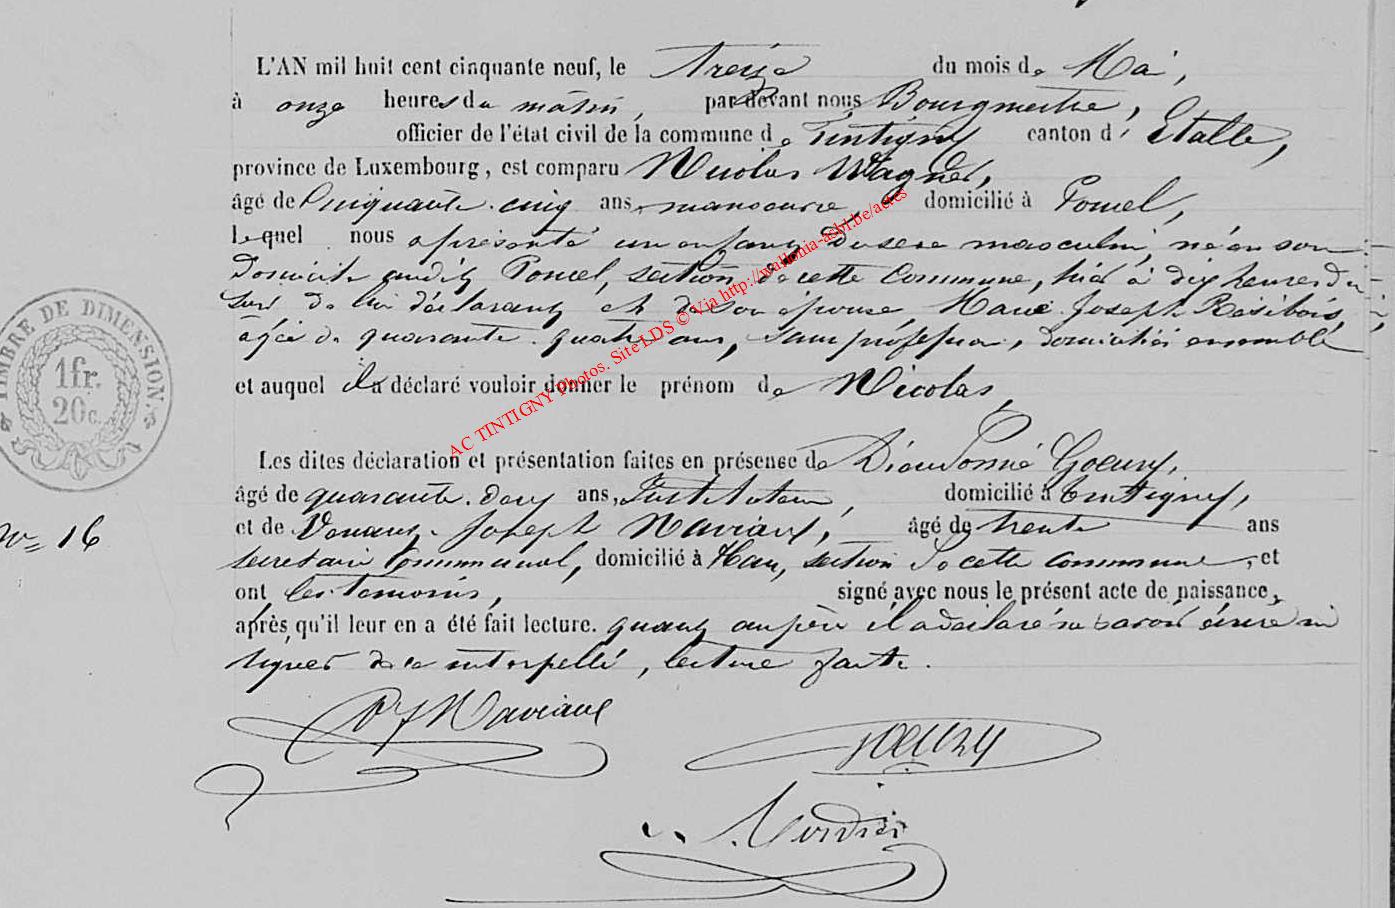 L'AN mil huit cent cinquante neuf, le Treize du mois de Mai,
à onze heures du matin, par devant nous Bourgmestre,
officier de l'état civil de la commune de Tintigny canton d' Etalle,
province de Luxembourg, est comparu Nicolas Wagner,
âgé de Cinquante-cinq ans, manoeuvre, domicilié à Poncel,
lequel nous a présenté un enfant du sexe masculin, né en son
domicile audit Poncel, section de cette Commune, hier à dix heures du
soir de lui déclarant et de son épouse, Marie Joseph Résibois,
âgée de quarante-quatre ans, sans profession, domiciliés ensemble
et auquel il a déclaré vouloir donner le prénom de Nicolas,
Les dites déclaration et présentation faites en présence de Dieudonné Goeury,
âgé de quarante-deux ans, Instituteur, domicilié à Tintigny,
et de Joseph Naviaux, âgé de trente ans
secrétaire Communal, domicilié à Han, section de cette Commune, et
ont, les témoins, signé avec nous le présent acte de naissance,
après qu'il leur en a été fait lecture. quant au père il a déclaré ne savoir écrire ni
signer de ce interpellé, lecture faite.
Naviaux
Goeury
TIMBRE DE DIMENSION
1fr.
20c.
N° 16
AC TINTIGNY Photos. Site LDS © Via http://wallonia-asbl.be/actes